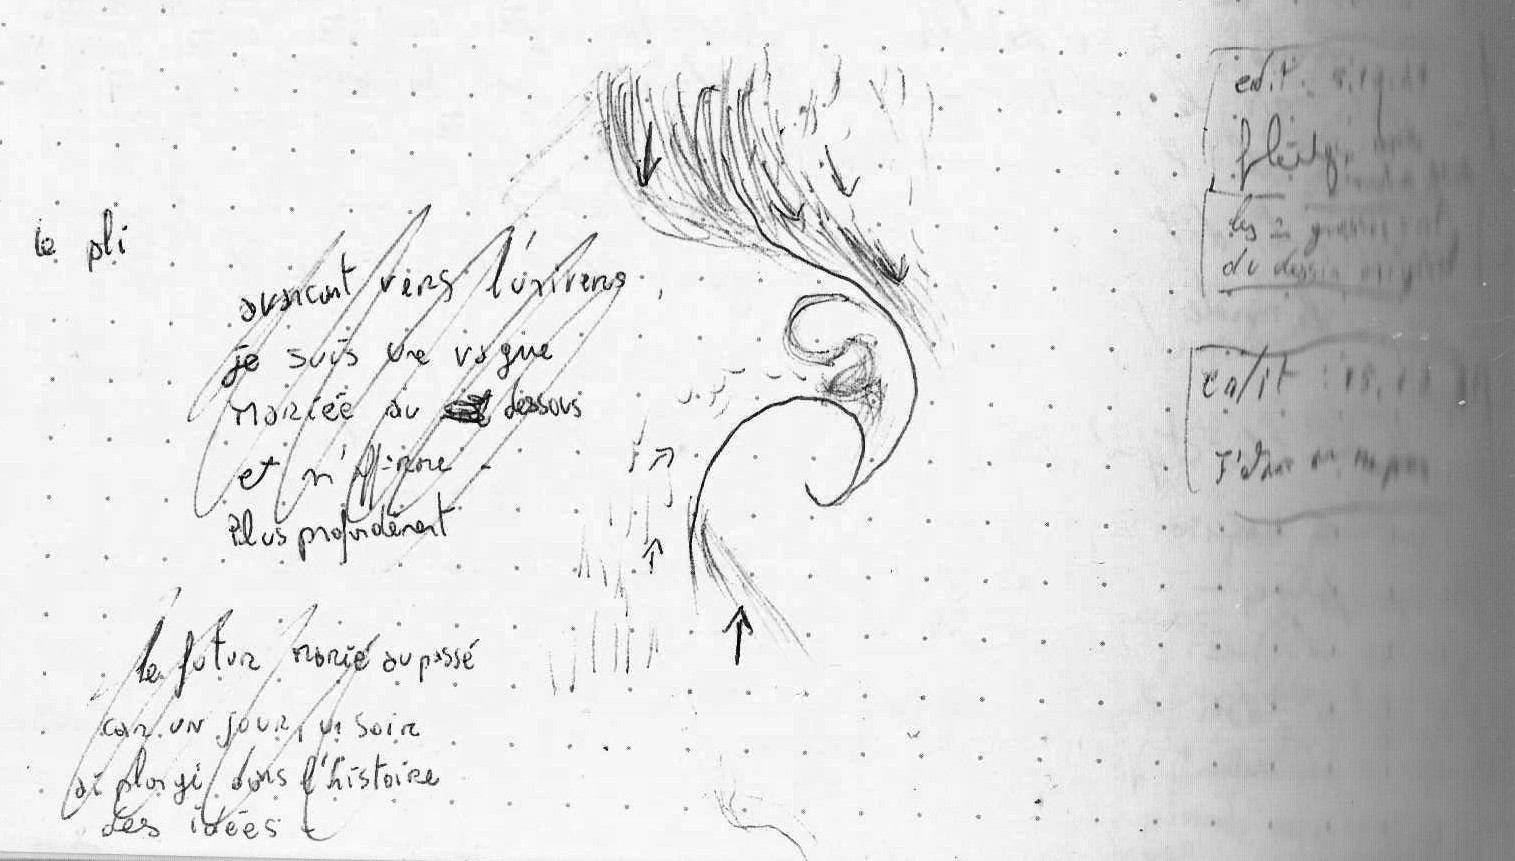 le pli
avancant vers l'univers,
je suis une vague
mariée au dessous
et m'affirme
plus profondément
le futur marié au passé
car un jour, un soir
ai plongé dans l'histoire
des idées -
edit :
les 2
du dessin original
edit : 15,